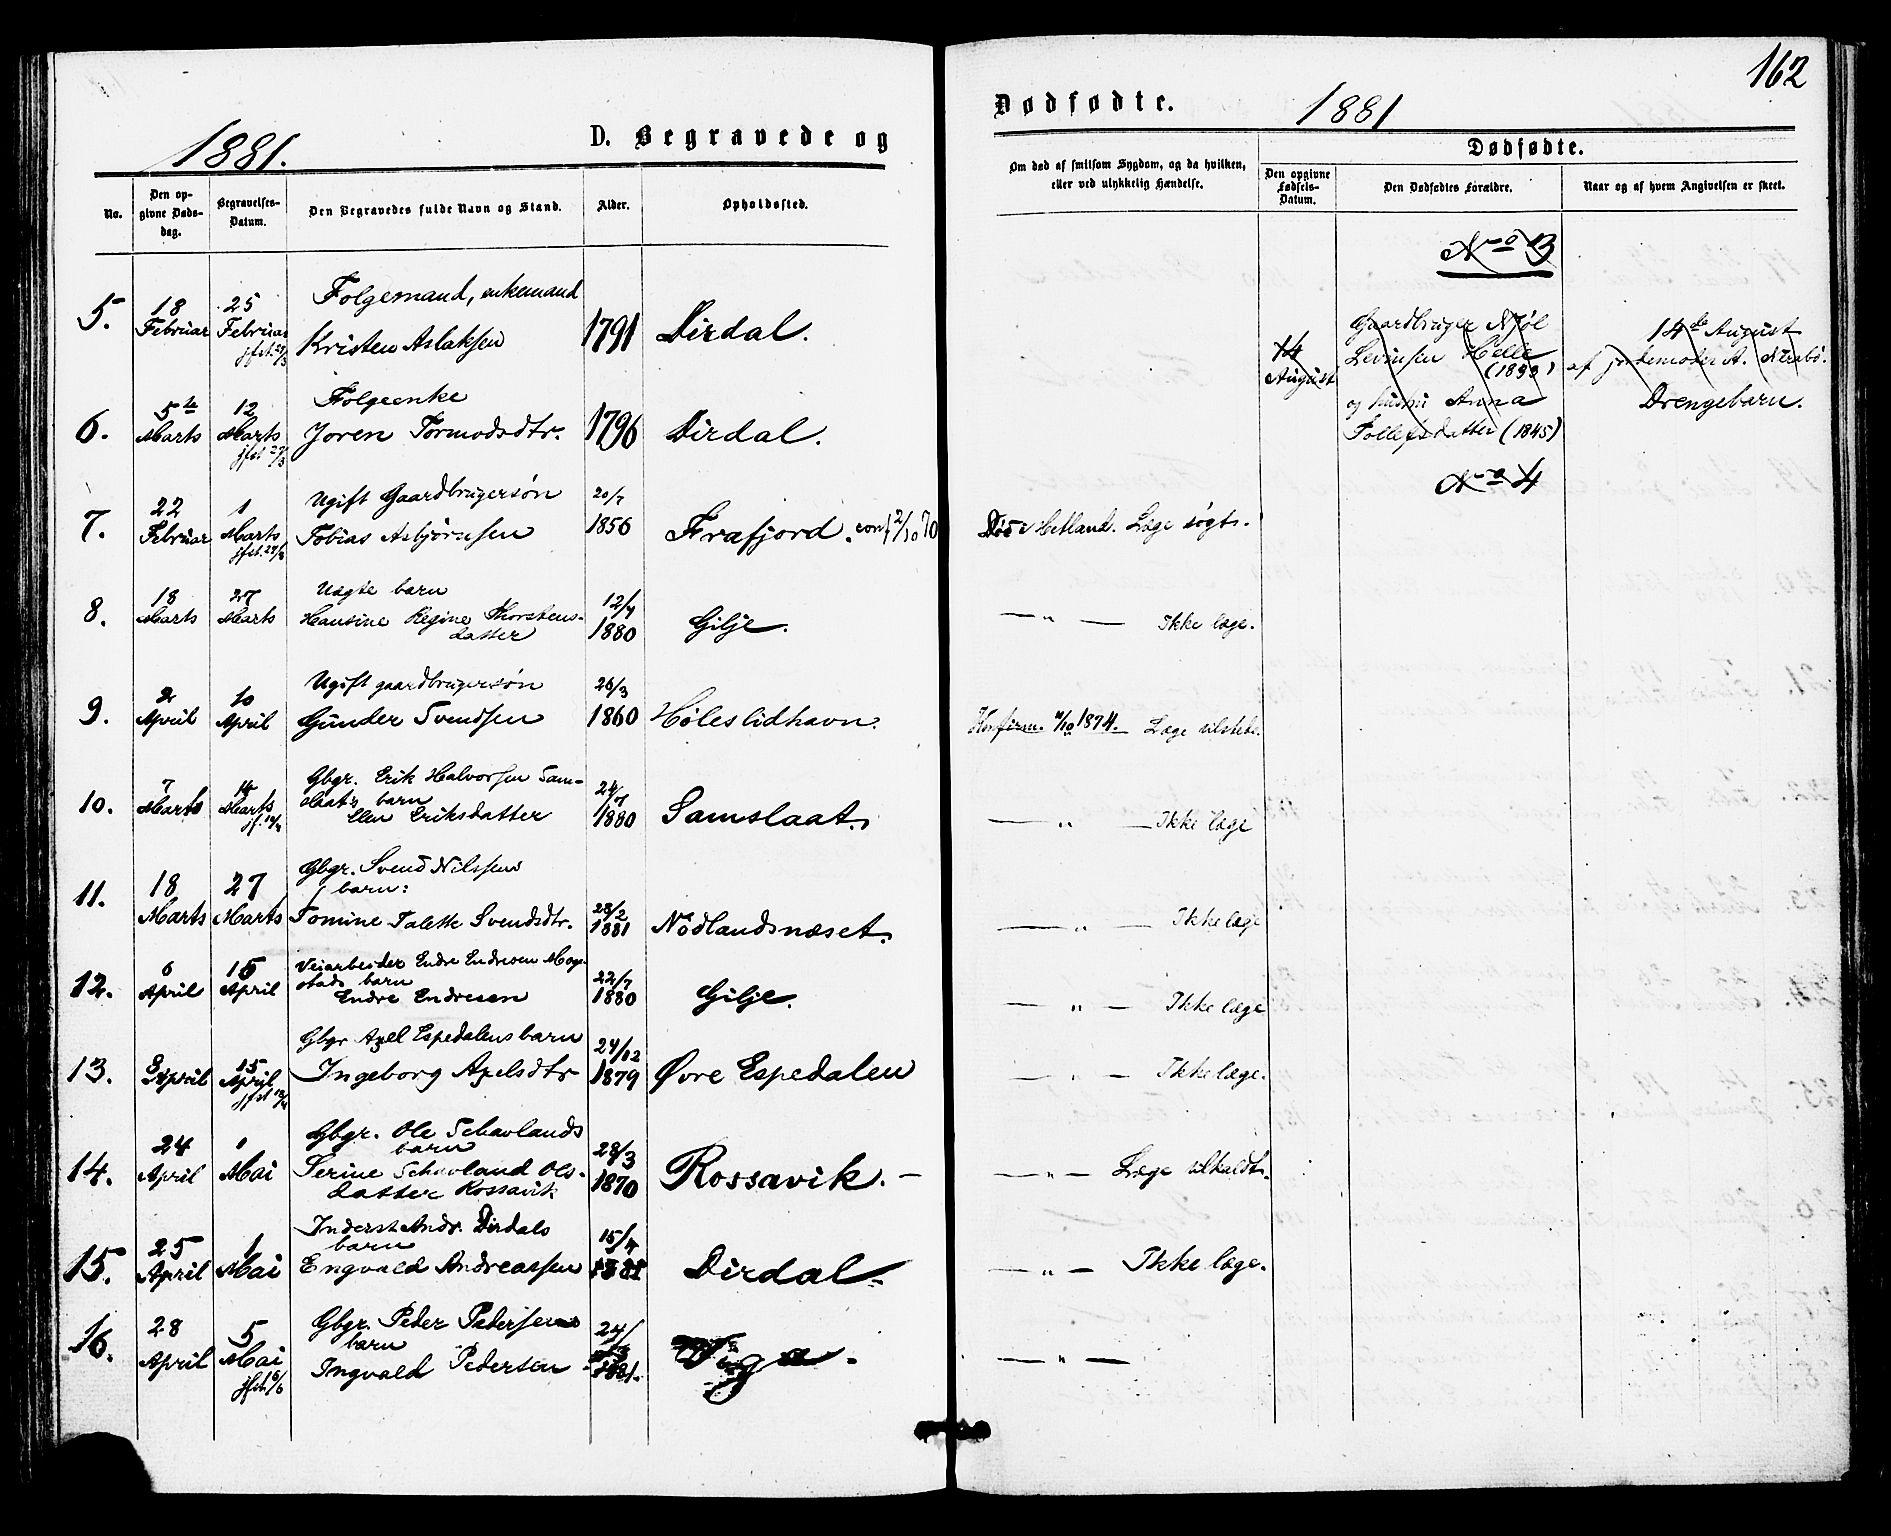 162
1881.
D. Begravede og
Dødfødte.
1881
No.
Den opgivne Dødsdag.
Begravelses-Datum.
Den Begravedes fulde Navn og Stand.
Alder.
Opholdssted.
Om død af smitsom Sygdom, og da hvilken, eller ved ulykkelig Hændelse.
Dødfødte.
Den opgivne Fødsels-Datum.
Den Dødfødtes Forældre.
Naar og af hvem Angivelsen er skeet.
5.
18 Februar
25 Februar
jfst. 27/3
Folgemand, enkemand
Kristen Aslaksen
1791
Dirdal.
6.
5te Marts
12 Marts
jfst 27/3
Folgeenke
Joren Tormodsdtr.
1796
Dirdal.
7.
22 Februar
1 Marts
jfst. 27/3
Ugift Gaardbrugersøn
Tobias Asbjørnsen
20/7
1856
Frafjord. conf 2/10 70
Død i Hetland. Læge søgt.
8.
18 Marts
27 Marts
Uægte barn
Hansine Regine Thorstens-
datter
12/4
1880
Gilje.
— " — Ikke læge.
9.
2 April
10 April
Ugift gaardbrugersøn
Gunder Svendsen
26/3
1860
Høleslidhavn.
Konfirm. 4/10 1874. — Læge tilstede.
10.
7 Marts
14 Marts
Gbgr. Erik Halvorsen Sam-
slaat's barn
Elen Eriksdatter
24/7
1880
Samslaat.
— " — Ikke læge
11.
18 Marts
27 Marts
Gbgr. Svend Nilssens
barn:
Tomine Talette Svendsdtr.
28/2
1881
Nødlandsnæset.
— " — Ikke læge
12.
6 April
15 April
Veiarbeider Endre Endresen Mog-
stads barn
Endre Endresen
22/7
1880
Gilje.
— " — Ikke læge
13.
8 April
15 April
jfst 18/4
Gbgr Axel Espedalens barn
Ingeborg Axelsdtr
24/12
1879
Øvre Espedalen
— " — Ikke læge.
14.
24 April
1 Mai
Gbgr. Ole Schavlands
barn
Serine Schavland Ols-
datter Rossavik
28/3
1870
Rossavik. —
— " — Læge tilkaldt.
15.
25 April
1 Mai
Inderst Andr. Dirdals
barn
Engvald Andreassen
15/4
1881
Dirdal.
— " — Ikke læge.
16.
28 April
5 Mai
jfst. 6/6
Gbgr. Peder Pedersens
barn
Ingvald Pedersen
24/3
1881.
— " —
No 3
14 August
Gaardbruger Njøl
Levinsen Helle
og hustru Anna
Tollefsdatter (1845)
14de August
af jordemoder A. Nærabø.
Drengebarn.
No 4